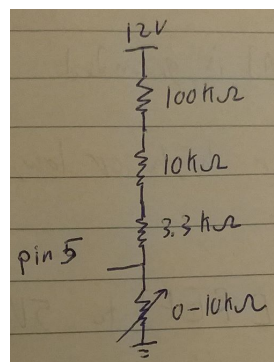 12V
100KΩ
10KΩ
3.3KΩ
pin 5
0-10KΩ